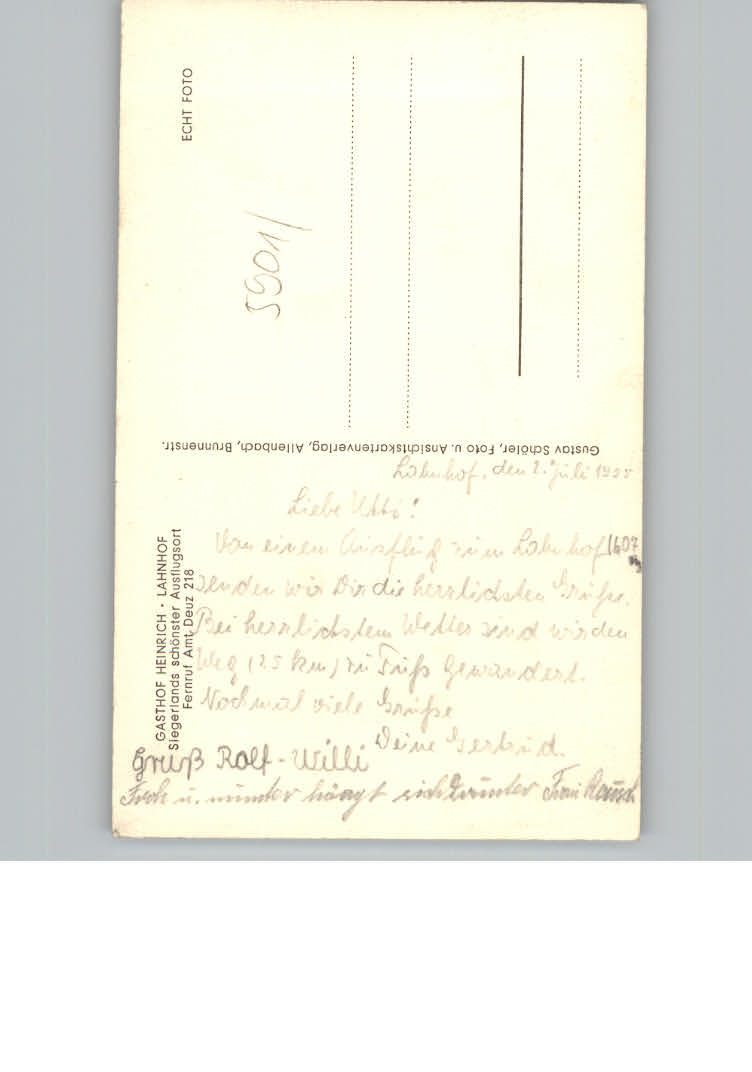 ECHT FOTO
5901/
Gustav Schöler, Foto u. Ansichtskartenverlag, Allenbach, Brunnenstr.
GASTHOF HEINRICH · LAHNHOF
Siegerlands schönster Ausflugsort
Fernruf Amt Deuz 218
Lahnhof, den 2. Juli 1955
Liebe
Von einem Ausflug zum Lahnhof (607
senden wir Dir die herrlichsten Grüße.
Bei herrlichstem Wetter sind wir den
Weg (25 km) zu Fuß gewandert.
Nochmal viele Grüße
Deine Gertrud.
Gruß Rolf - Willi
Froh u. munter hängt sich drunter